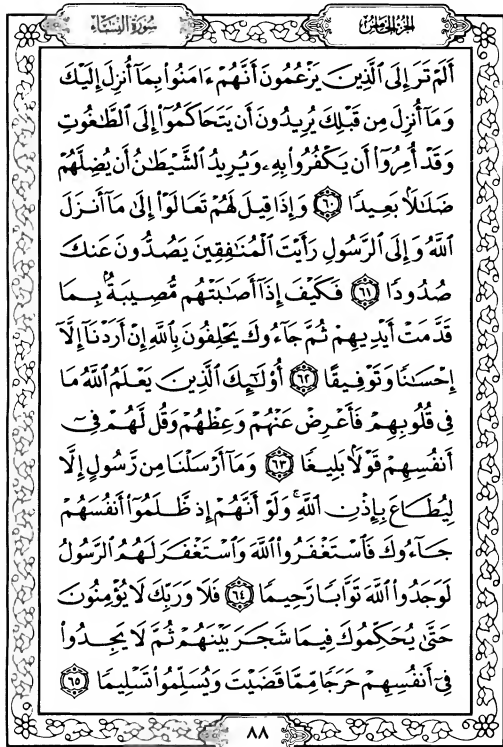 الجزء الخامس
سورة النساء
أَلَمْ تَرَ إِلَى ٱلَّذِينَ يَزْعُمُونَ أَنَّهُمْ ءَامَنُوا۟ بِمَآ أُنزِلَ إِلَيْكَ
وَمَآ أُنزِلَ مِن قَبْلِكَ يُرِيدُونَ أَن يَتَحَاكَمُوٓا۟ إِلَى ٱلطَّـٰغُوتِ
وَقَدْ أُمِرُوٓا۟ أَن يَكْفُرُوا۟ بِهِۦ وَيُرِيدُ ٱلشَّيْطَـٰنُ أَن يُضِلَّهُمْ
ضَلَـٰلًۢا بَعِيدًا ٦٠ وَإِذَا قِيلَ لَهُمْ تَعَالَوْا۟ إِلَىٰ مَآ أَنزَلَ
ٱللَّهُ وَإِلَى ٱلرَّسُولِ رَأَيْتَ ٱلْمُنَـٰفِقِينَ يَصُدُّونَ عَنكَ
صُدُودًا ٦١ فَكَيْفَ إِذَآ أَصَـٰبَتْهُم مُّصِيبَةٌۢ بِمَا
قَدَّمَتْ أَيْدِيهِمْ ثُمَّ جَآءُوكَ يَحْلِفُونَ بِٱللَّهِ إِنْ أَرَدْنَآ إِلَّآ
إِحْسَـٰنًا وَتَوْفِيقًا ٦٢ أُو۟لَـٰٓئِكَ ٱلَّذِينَ يَعْلَمُ ٱللَّهُ مَا
فِى قُلُوبِهِمْ فَأَعْرِضْ عَنْهُمْ وَعِظْهُمْ وَقُل لَّهُمْ فِىٓ
أَنفُسِهِمْ قَوْلًۢا بَلِيغًا ٦٣ وَمَآ أَرْسَلْنَا مِن رَّسُولٍ إِلَّا
لِيُطَاعَ بِإِذْنِ ٱللَّهِ ۚ وَلَوْ أَنَّهُمْ إِذ ظَّلَمُوٓا۟ أَنفُسَهُمْ
جَآءُوكَ فَٱسْتَغْفَرُوا۟ ٱللَّهَ وَٱسْتَغْفَرَ لَهُمُ ٱلرَّسُولُ
لَوَجَدُوا۟ ٱللَّهَ تَوَّابًا رَّحِيمًا ٦٤ فَلَا وَرَبِّكَ لَا يُؤْمِنُونَ
حَتَّىٰ يُحَكِّمُوكَ فِيمَا شَجَرَ بَيْنَهُمْ ثُمَّ لَا يَجِدُوا۟
فِىٓ أَنفُسِهِمْ حَرَجًا مِّمَّا قَضَيْتَ وَيُسَلِّمُوا۟ تَسْلِيمًا ٦٥
٨٨